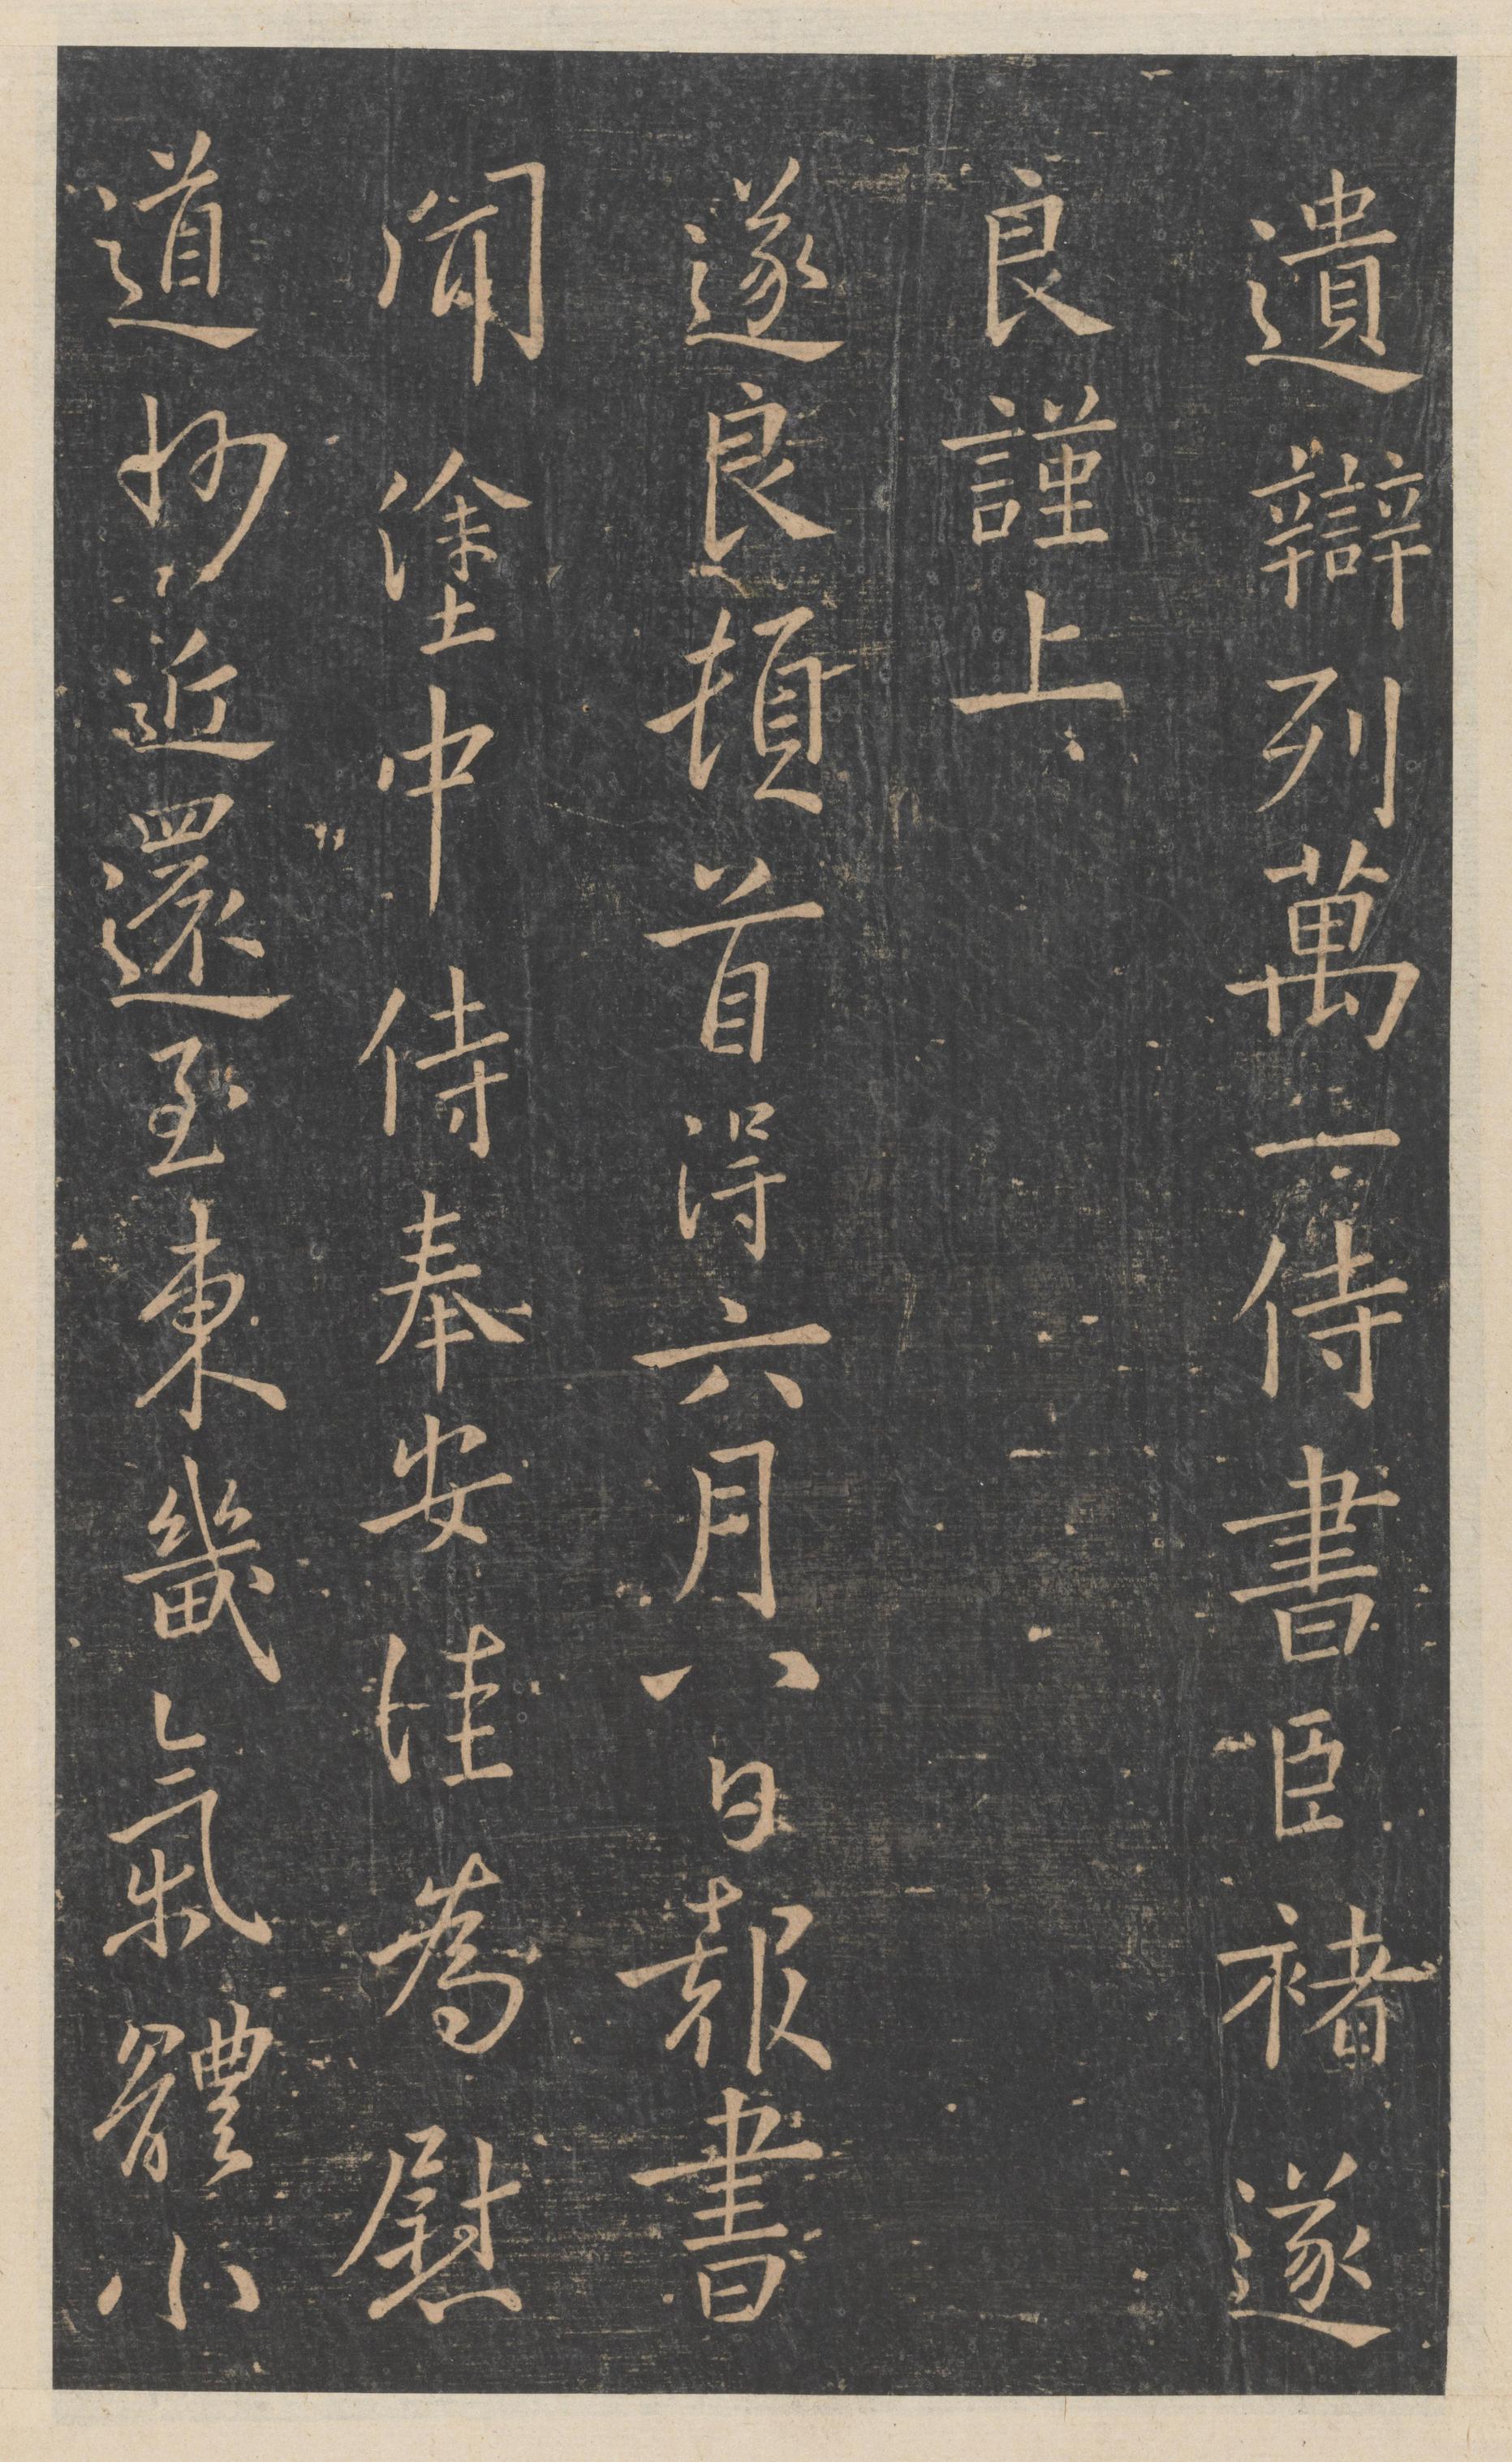 遺辯列萬一侍書臣褚遂
良謹上
遂良頓首得六月八日報書
聞塗中侍奉安佳為慰
道妙近還至東畿氣體小